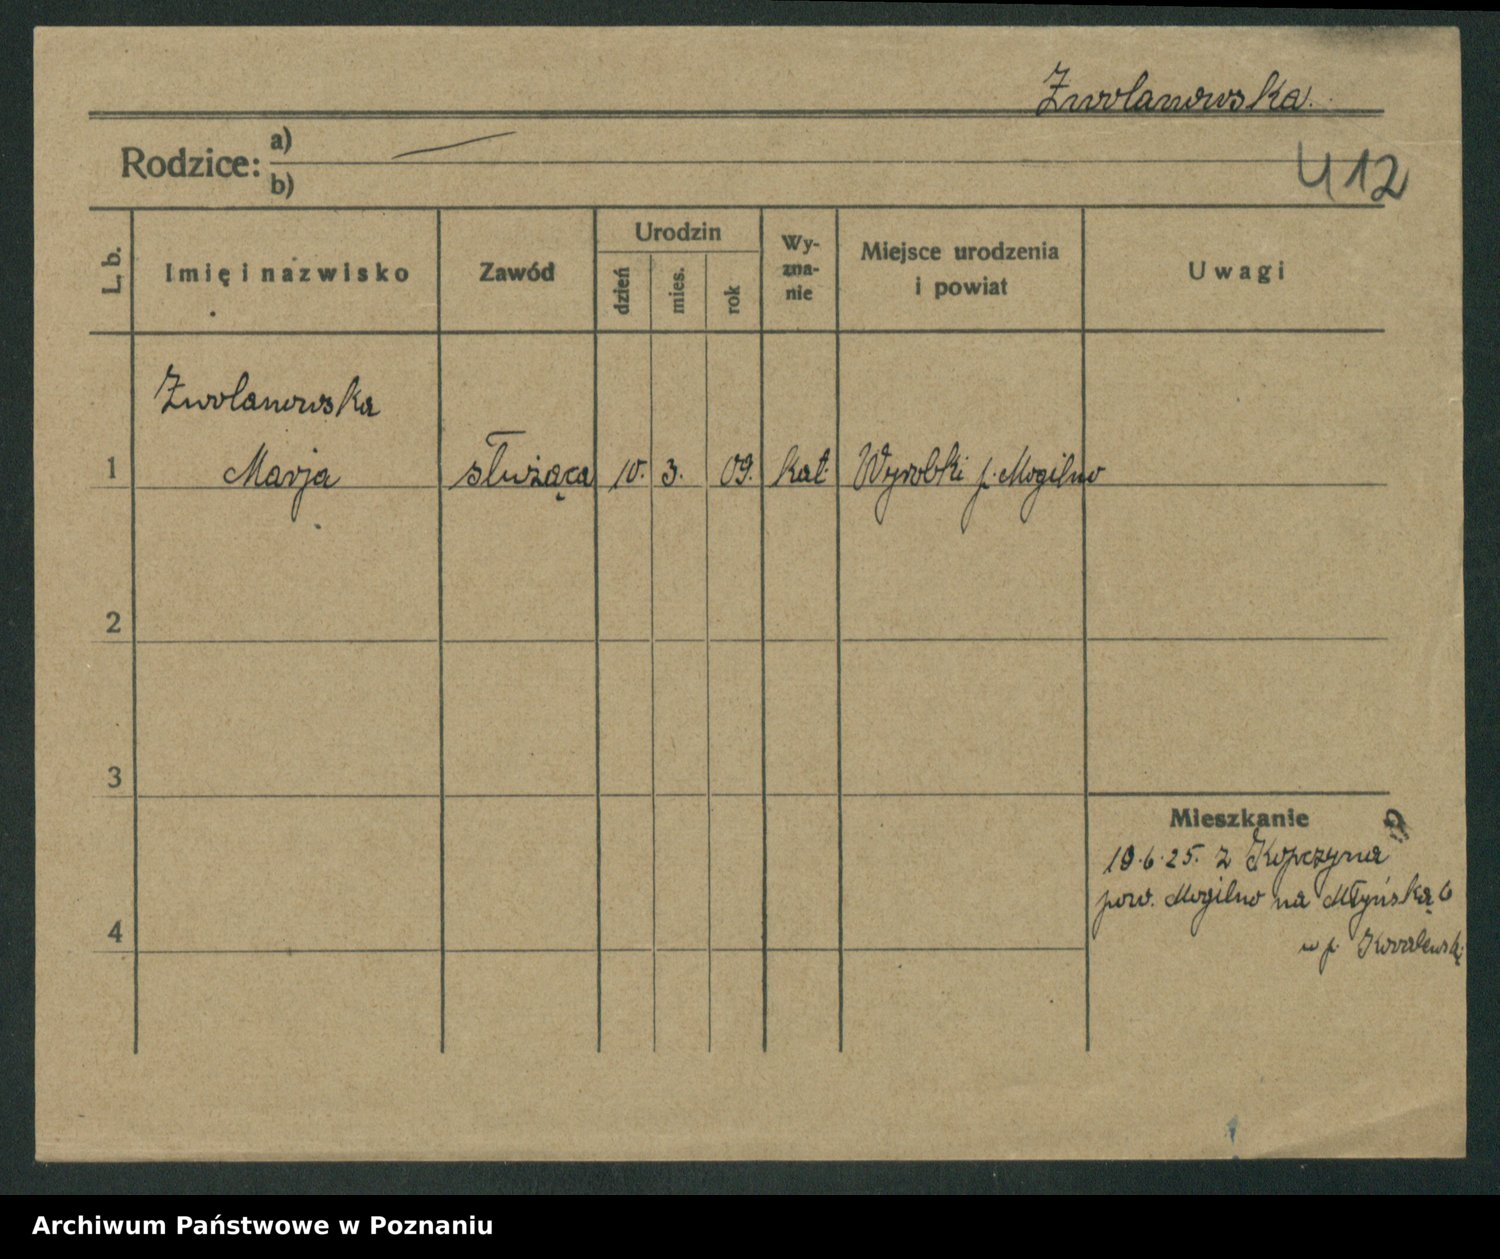 Zwolanowska.
Rodzice: a)
b)
412
L. b.
Imię i nazwisko
Zawód
Urodzin
dzień
mies.
rok
Wy-
zna-
nie
Miejsce urodzenia
i powiat
Uwagi
Zwolanowska
1 Marja służąca 10. 3. 09. kat. Wyrobki p. Mogilno
2
3
Mieszkanie
19.6.25. z Kopczyna
pow. Mogilno na Młyńską 6
4
w p. Kowalewski
Archiwum Państwowe w Poznaniu